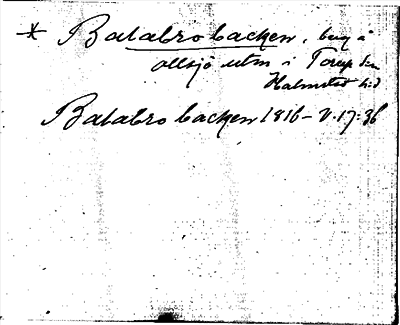 * Balabrobacken, bing å
allsjö utm i Torup sn
Halmstad hd
Balabrobacken 1816 - V:17:36